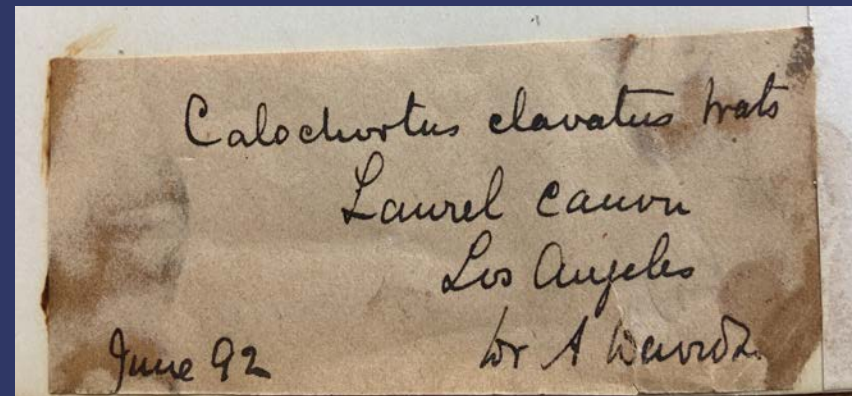 Calochortus clavatus Wats
Laurel Canon
Los Angeles
June 92 Dr A Davids.